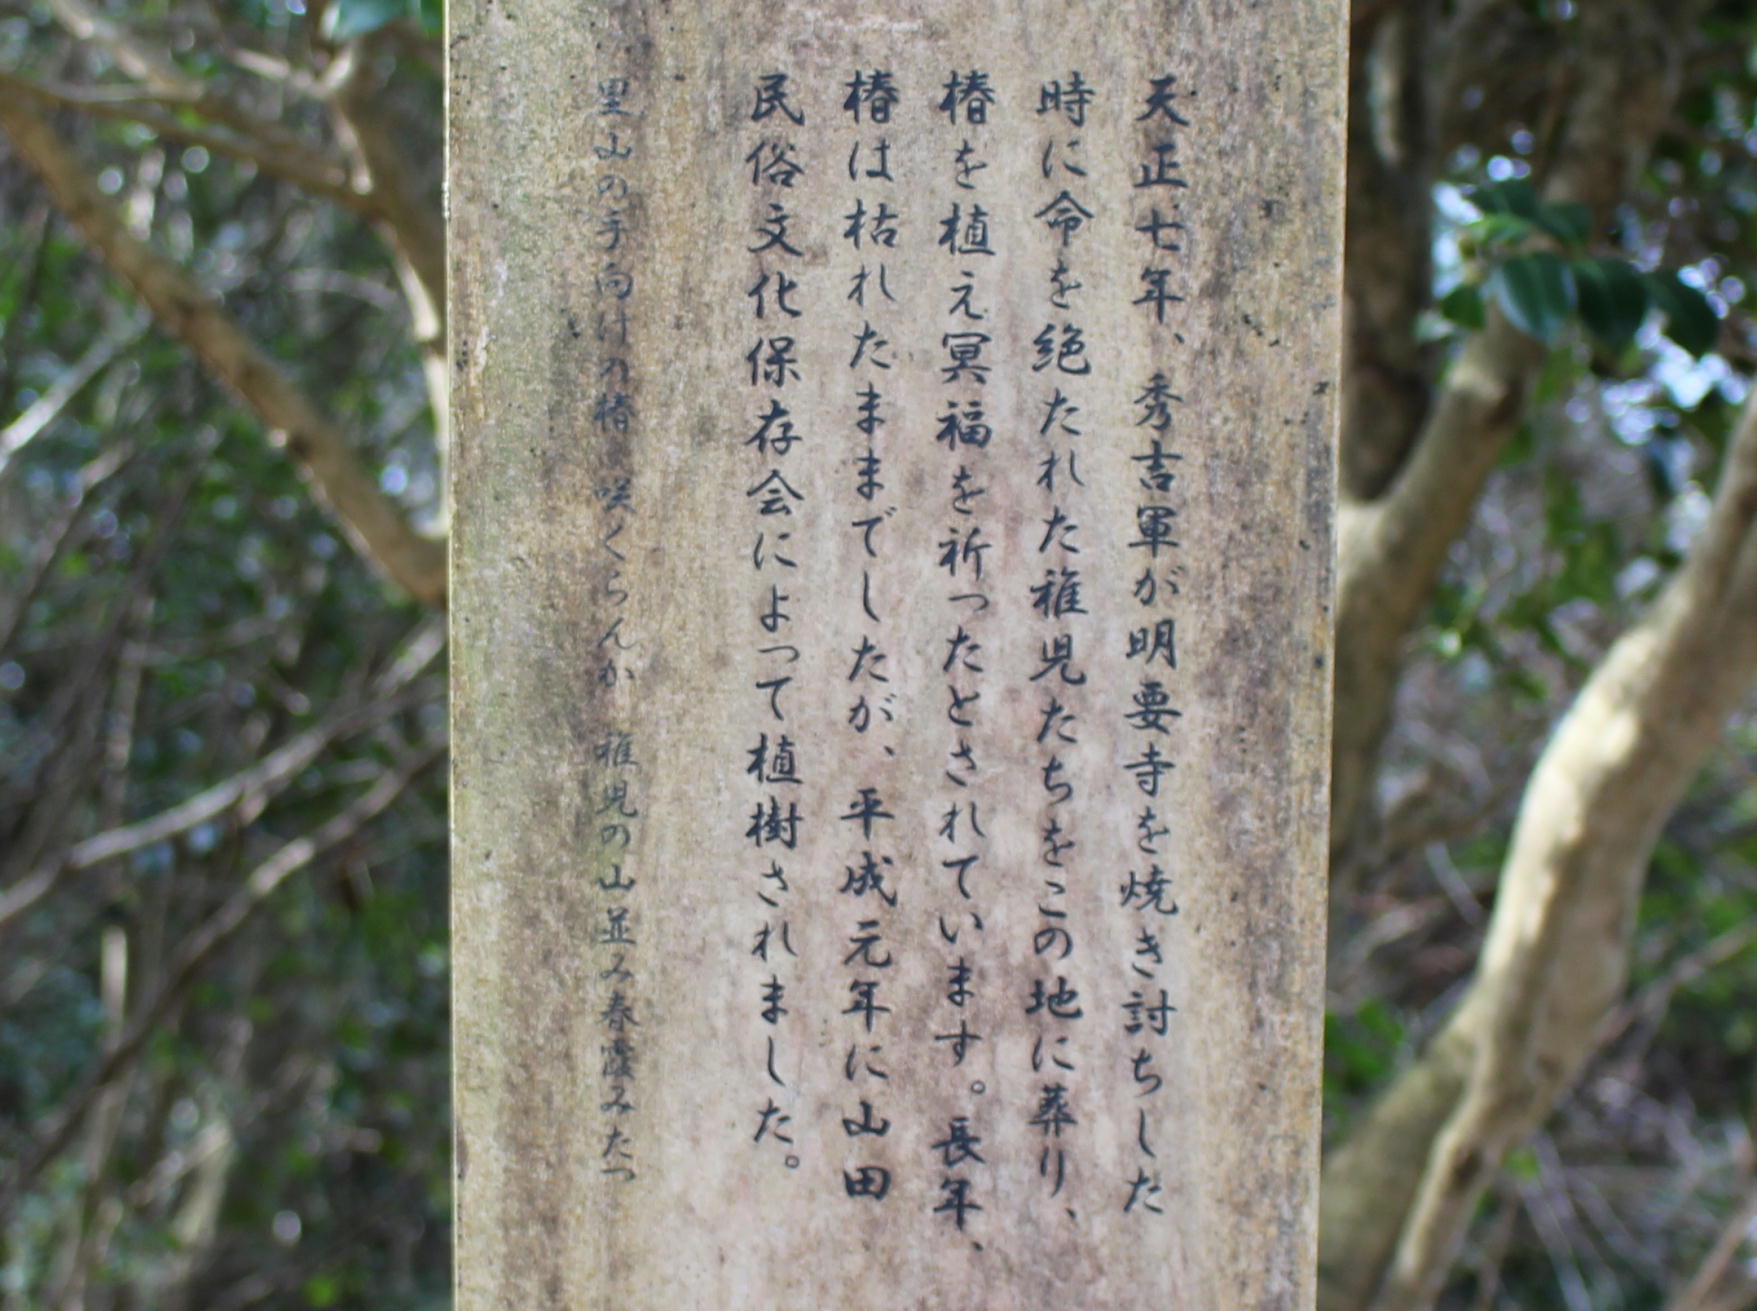 天正七年、秀吉軍が明要寺を焼き討ちした
時に命を絶たれた稚児たちをこの地に葬り、
椿を植え冥福を祈ったとされています。長年、
椿は枯れたままでしたが、平成元年に山田
民俗文化保存会によって植樹されました。
里山の手向けの椿 咲くらんか 稚児の山並み春霞みたつ